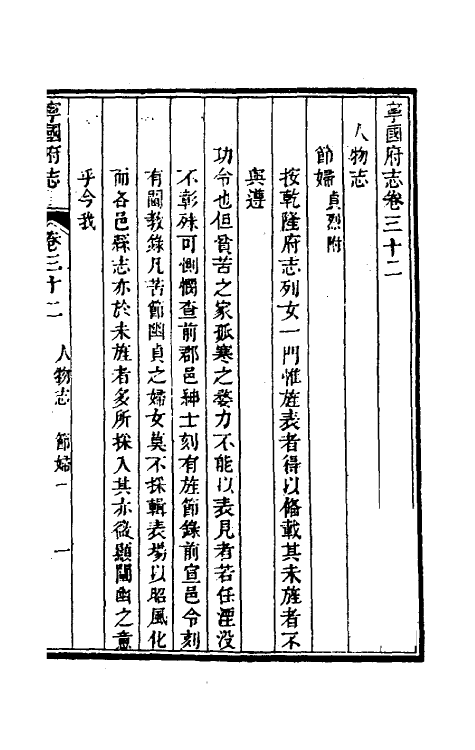 寧國府志卷三十二
人物志
節婦貞烈附
按乾隆府志列女一門惟旌表者得以備載其未旌者不
與遵
功令也但貧苦之家孤寒之嫠力不能以表見者若任湮没
不彰殊可惻憫查前郡邑紳士刻有旌節錄前宣邑令刻
有闡教錄凡苦節幽貞之婦女莫不採輯表揚以昭風化
而各邑縣志亦於未旌者多所採入其亦微顯闡幽之意
乎今我
寧國府志 卷三十二 人物志 節婦一 一